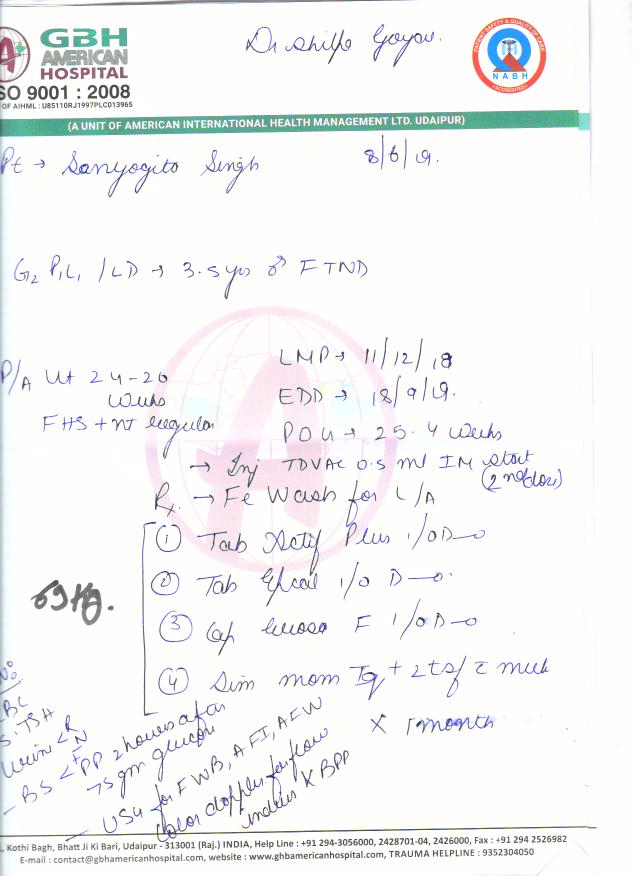 GBH
AMERICAN
HOSPITAL
SO 9001 : 2008
OF AIHML : U85110RJ1997PLC013965
Dr Shilpa Goyal.
PATIENT SAFETY & QUALITY OF CARE
NABH
ACCREDITED
(A UNIT OF AMERICAN INTERNATIONAL HEALTH MANAGEMENT LTD. UDAIPUR)
Pt → Sanyogita Singh 8/6/19.
G2 P1L1 / LD → 3.5 yrs ♂ FTND
LMP → 11/12/18
P/A Ut 24-26 weeks
EDD → 18/9/19.
FHS + nt regular
POG → 25.4 weeks
→ Inj TDVAC 0.5 ml IM start
(2nd dose)
Rx. → Fe Wash for L/A
① Tab Actif Plus 1/OD
② Tab 1/OD
69 Kg.
③ Cap F 1/OD
④ Sim mom + 2 tsf c milk
x 1 month
BC
S. TSH
Urine < R
BS < F
PP 2 hours after
75 gm glucose
- USG for FWB, AFI, AFW
color doppler for flow
indices x BPP
, Kothi Bagh, Bhatt Ji Ki Bari, Udaipur - 313001 (Raj.) INDIA, Help Line : +91 294-3056000, 2428701-04, 2426000, Fax : +91 294 2526982
E-mail : contact@gbhamericanhospital.com, website : www.gbhamericanhospital.com, TRAUMA HELPLINE : 9352304050